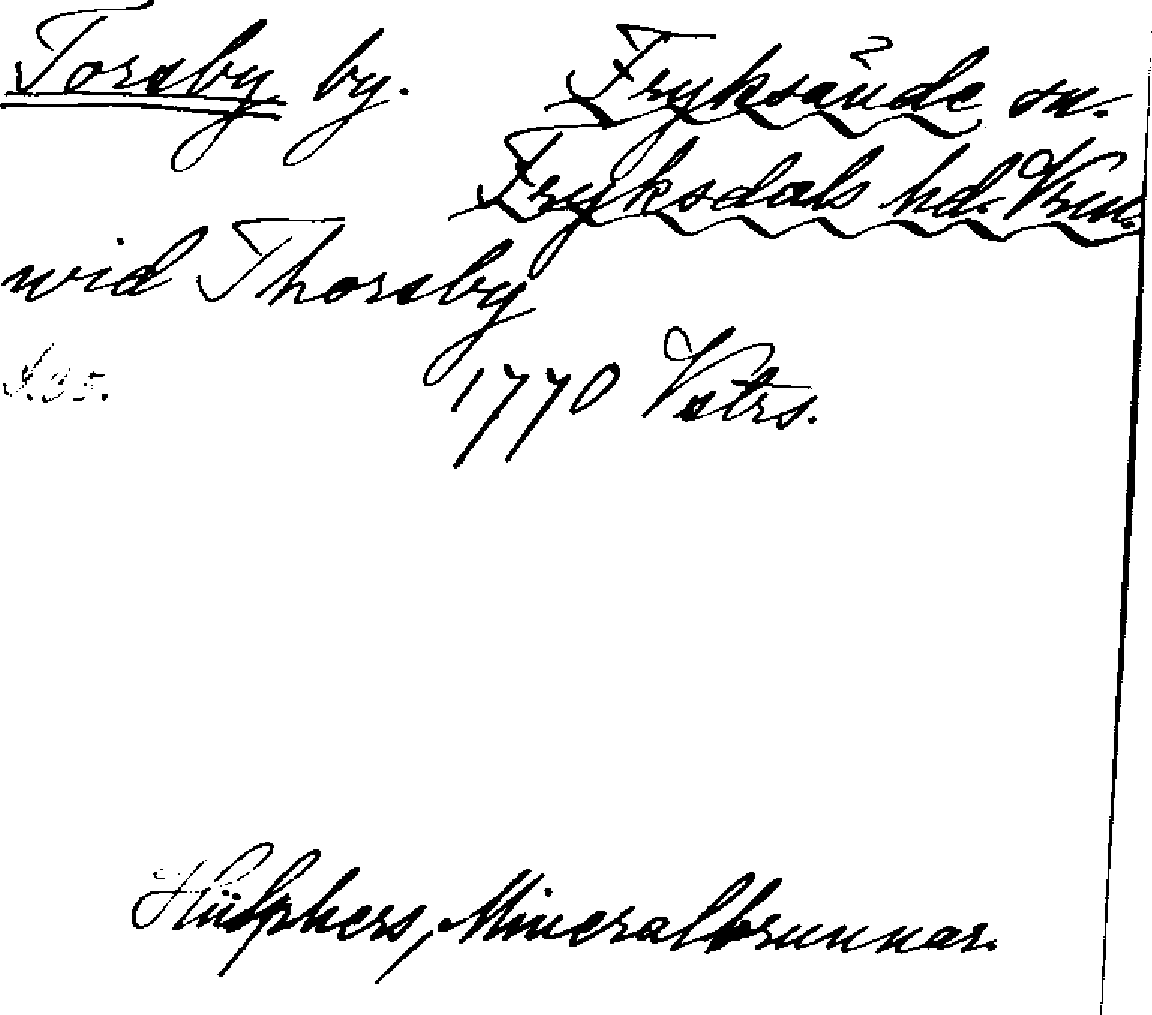 Torsby by. Fryksände sn.
Fryksdals hd. Vrm.
wid Thorsby
S. 35. 1770 Vstrs.
Hülphers, Mineralbrunnar.